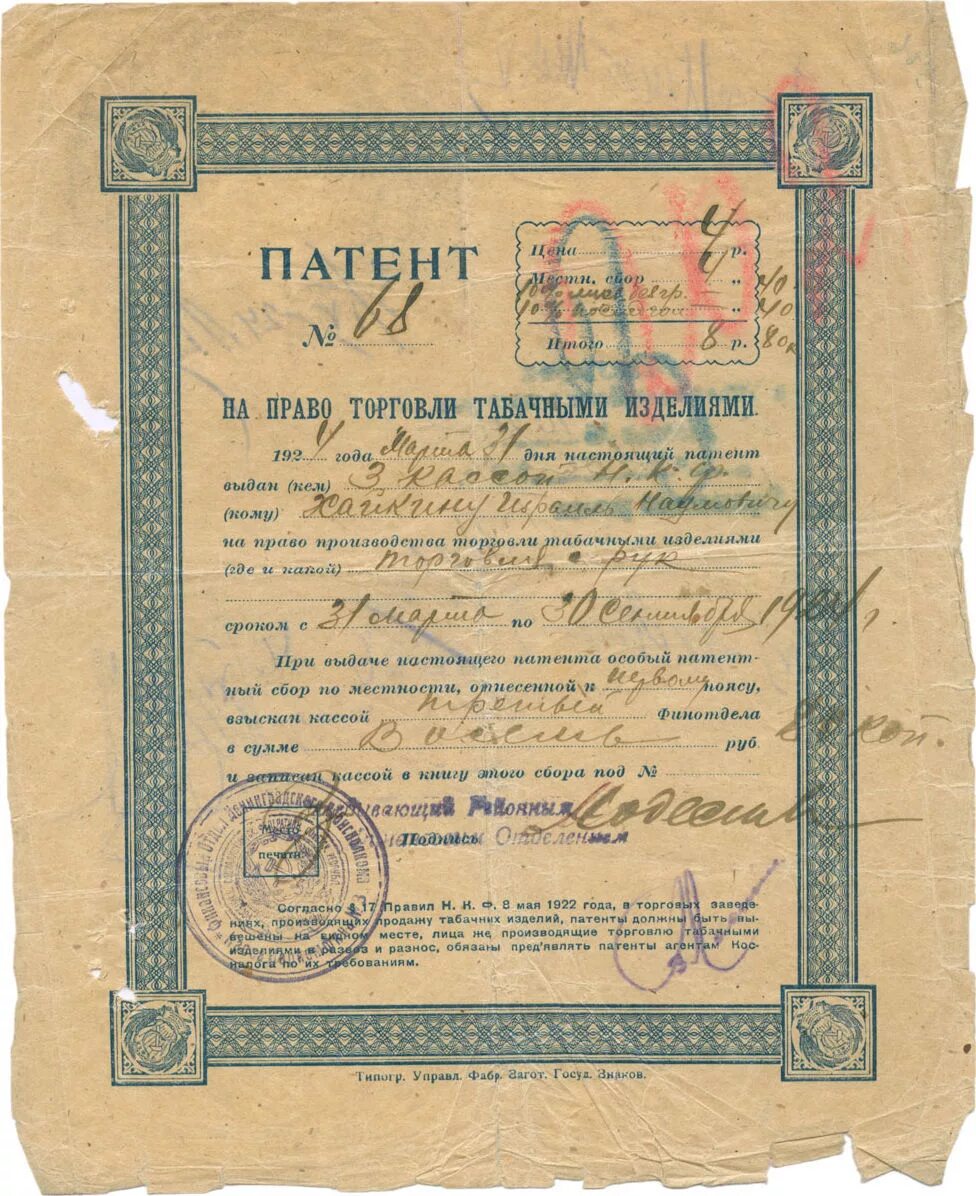 ПАТЕНТ
№ 68
Цена 4 р.
Местн. сбор 4 "
10% 40
10% " 40
Итого 8 р. 80к
НА ПРАВО ТОРГОВЛИ ТАБАЧНЫМИ ИЗДЕЛИЯМИ.
1924 года Марта 31 дня настоящий патент
выдан (кем) 3 кассой Н. К. Ф.
(кому) Хайкину Израиль Наумовичу
на право производства торговли табачными изделиями
(где и какой) торговля с рук
сроком с 31 марта по 30 Сентября 1924 г.
При выдаче настоящего патента особый патент-
ный сбор по местности, отнесенной к первому поясу,
взыскан кассой третьей Финотдела
в сумме Восемь руб 80 коп.
и записан кассой в книгу этого сбора под №
Районным
Подпись
Отделением
Место
печати
Финансовый Отдел Ленинградского
Согласно § 17 Правил Н. К. Ф. 8 мая 1922 года, в торговых заведе-
ниях, производящих продажу табачных изделий, патенты должны быть вы-
вешены на видном месте, лица же производящие торговлю табачными
изделиями в развоз и разнос, обязаны пред'являть патенты агентам Кос-
налога по их требованиям.
Типогр. Управл. Фабр. Загот. Госуд. Знаков.